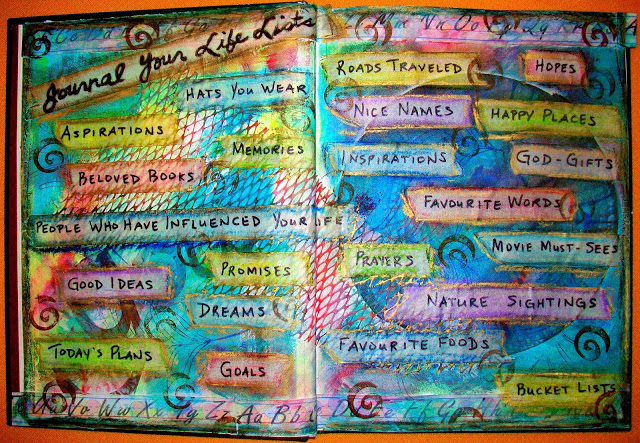 Journal Your Life Lists
Hats You Wear
Aspirations
Memories
Beloved Books
People Who Have Influenced Your Life
Promises
Good Ideas
Dreams
Today's Plans
Goals
Roads Traveled
Hopes
Nice Names
Happy Places
Inspirations
God-Gifts
Favourite Words
Movie Must-Sees
Prayers
Nature Sightings
Favourite Foods
Bucket Lists
Vv Ww Xx Yy Zz Aa Bb